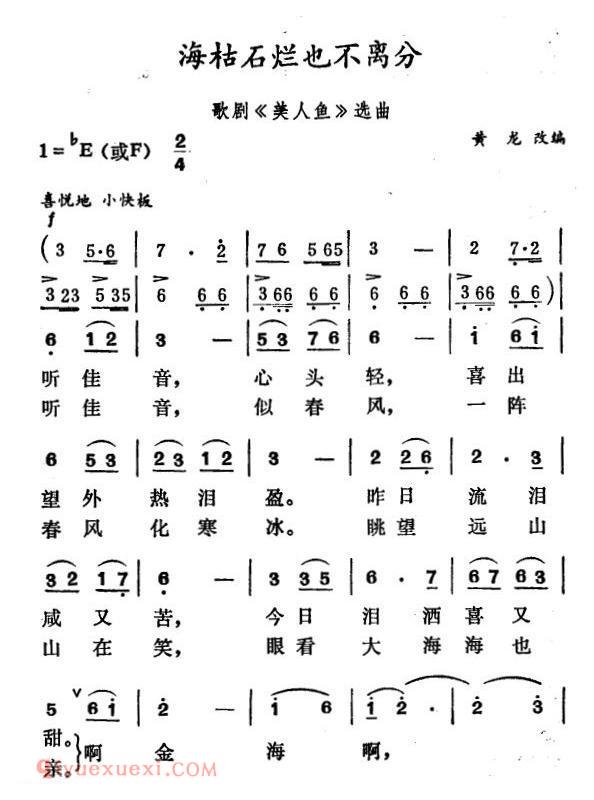 海枯石烂也不离分
歌剧《美人鱼》选曲
1=♭E（或F） 2/4 黄 龙 改编
喜悦地 小快板
f
(3 5·6 | 7 · 2 | 76 565 | 3 — | 2 7·2 |
323 535 | 6 6 6 | 366 6 6 | 6 6 6 6 | 366 6 6) |
6 12 | 3 — | 53 76 | 6 — | i 6i |
听佳 音， 心头 轻， 喜出
听佳 音， 似春 风， 一阵
6 53 | 23 12 | 3 — | 2 26 | 2 · 3 |
望外 热泪 盈。 昨日 流泪
春风 化寒 冰。 眺望 远山
32 17 | 6 — | 3 35 | 6 · 7 | 67 63 |
咸又 苦， 今日 泪洒喜又
山在 笑， 眼看 大海海也
5 6i | 2 — | i 6 | i 2· | 2 3 |
甜。啊 金 海 啊，
亲。
Qiyuexuexi.com